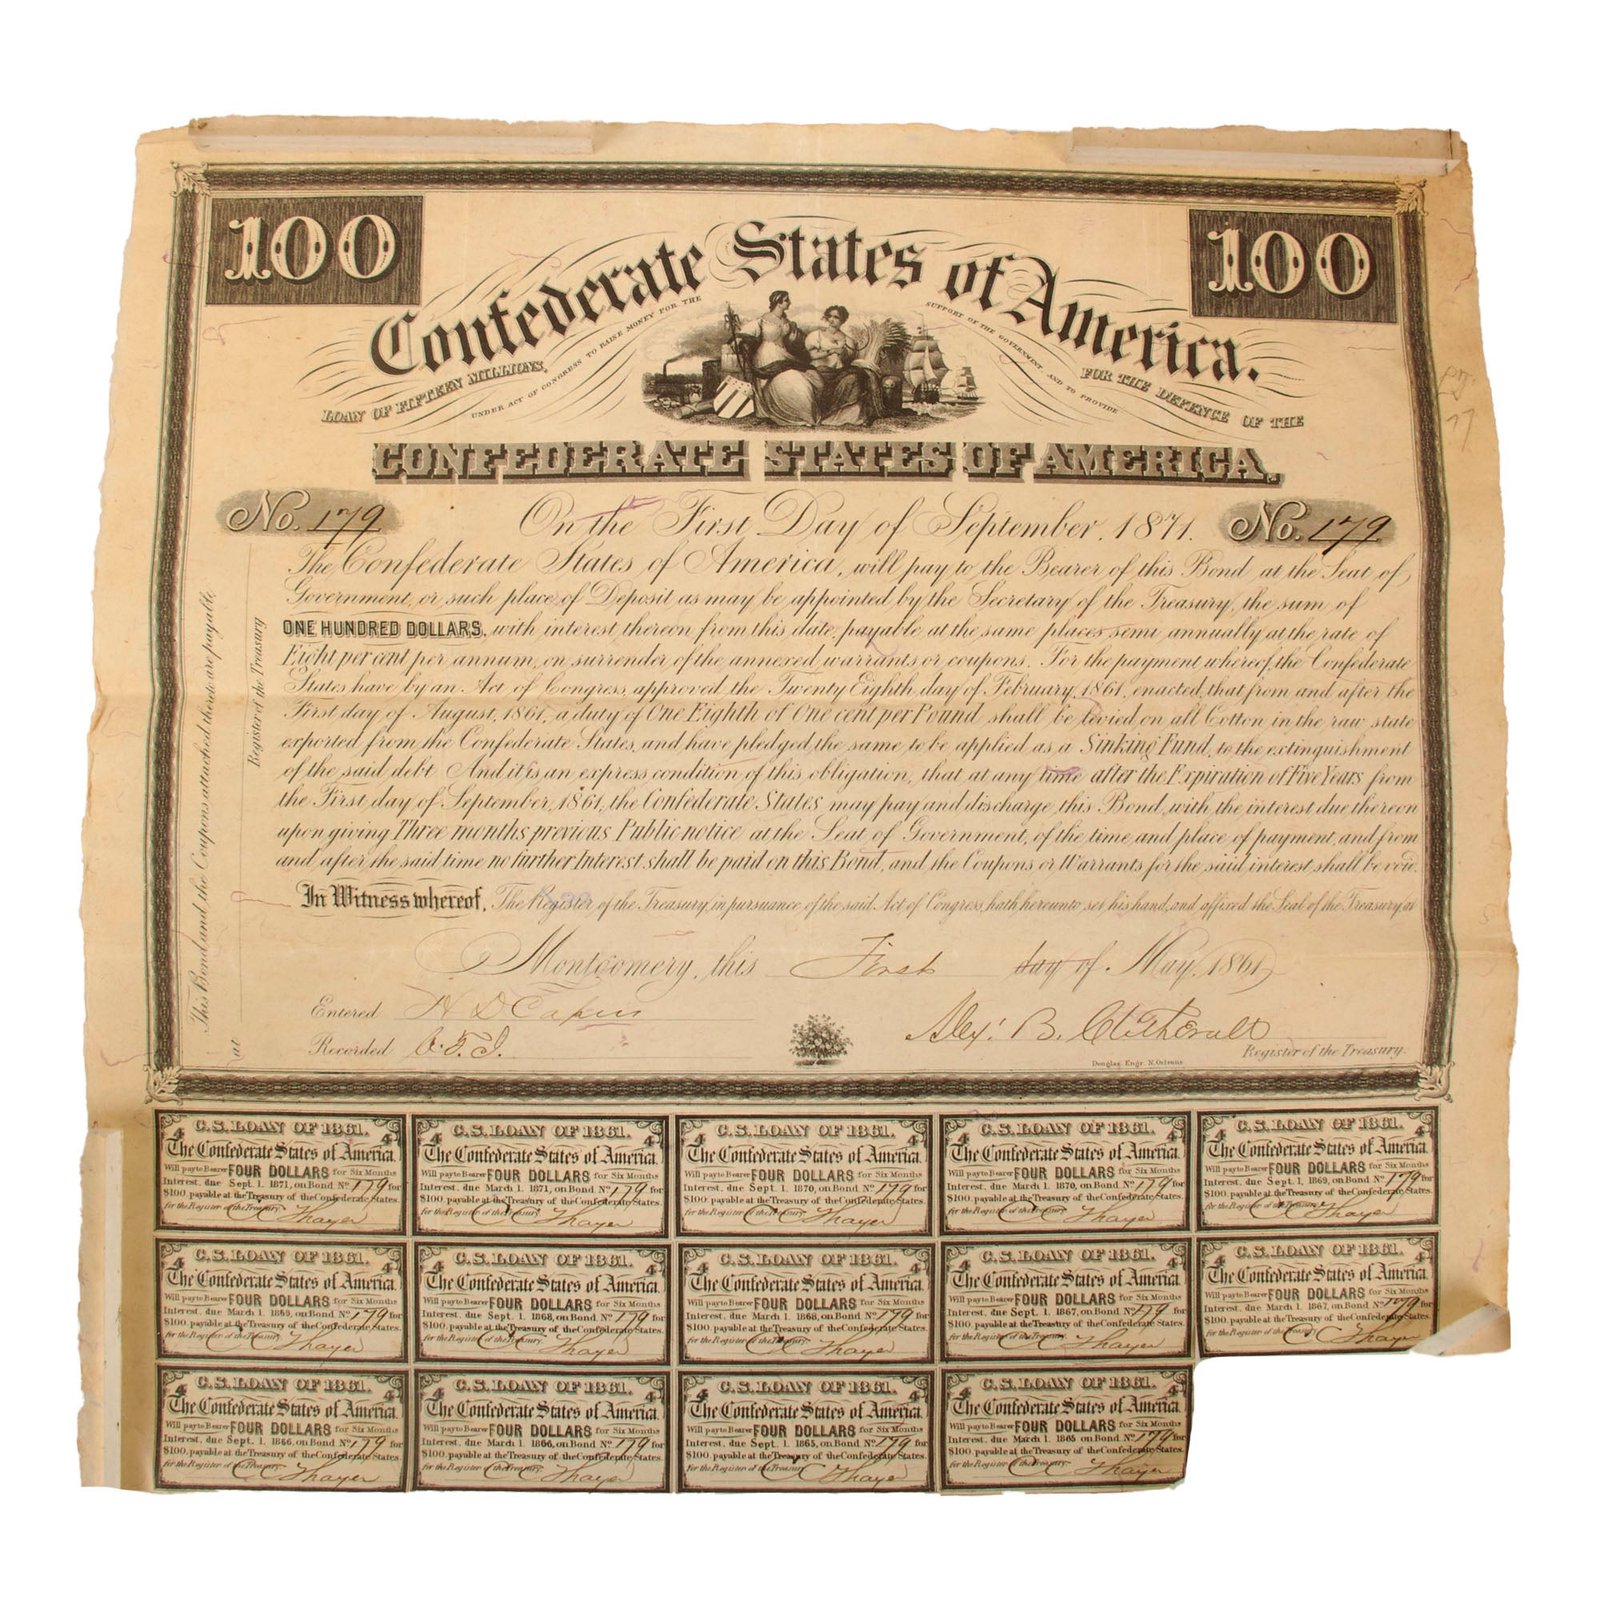 100
100
Confederate States of America.
LOAN OF FIFTEEN MILLIONS,
UNDER ACT OF CONGRESS TO RAISE MONEY FOR THE
SUPPORT OF THE GOVERNMENT AND TO PROVIDE
FOR THE DEFENCE OF THE
CONFEDERATE STATES OF AMERICA.
No. 179
On the First Day of September, 1871.
No. 179
The Confederate States of America, will pay to the Bearer of this Bond at the Seat of
Government, or such place of Deposit as may be appointed by the Secretary of the Treasury, the sum of
ONE HUNDRED DOLLARS, with interest thereon from this date, payable at the same places semi annually at the rate of
Eight per cent per annum, on surrender of the annexed warrants or coupons. For the payment whereof, the Confederate
States have by an Act of Congress, approved the Twenty Eighth day of February, 1861, enacted, that from and after the
First day of August, 1861, a duty of One Eighth of One cent per Pound shall be levied on all Cotton in the raw state
exported from the Confederate States, and have pledged the same to be applied as a Sinking Fund, to the extinguishment
of the said debt. And it is an express condition of this obligation, that at any time after the Expiration of Five Years from
the First day of September, 1861, the Confederate States may pay and discharge this Bond, with the interest due thereon
upon giving Three months previous Public notice at the Seat of Government, of the time and place of payment, and from
and after the said time no further Interest shall be paid on this Bond, and the Coupons or Warrants for the said interest shall be void.
In Witness whereof, The Register of the Treasury, in pursuance of the said Act of Congress, hath hereunto set his hand, and affixed the Seal of the Treasury, at
Montgomery, this First day of May, 1861
Entered
Recorded
Alex. B. Clitherall
Register of the Treasury.
Douglas, Engr. N. Orleans
This Bond and the Coupons attached thereto are payable
at
Register of the Treasury
4 C.S. LOAN OF 1861. 4
The Confederate States of America.
Will pay to Bearer FOUR DOLLARS for Six Months
Interest, due Sept. 1. 1871, on Bond No. 179 for
$100. payable at the Treasury of the Confederate States.
for the Register of the Treasury. Thayer
4 C.S. LOAN OF 1861. 4
The Confederate States of America.
Will pay to Bearer FOUR DOLLARS for Six Months
Interest, due March 1. 1871, on Bond No. 179 for
$100. payable at the Treasury of the Confederate States.
for the Register of the Treasury. Thayer
4 C.S. LOAN OF 1861. 4
The Confederate States of America.
Will pay to Bearer FOUR DOLLARS for Six Months
Interest, due Sept. 1. 1870, on Bond No. 179 for
$100. payable at the Treasury of the Confederate States.
for the Register of the Treasury. Thayer
4 C.S. LOAN OF 1861. 4
The Confederate States of America.
Will pay to Bearer FOUR DOLLARS for Six Months
Interest, due March 1. 1870, on Bond No. 179 for
$100. payable at the Treasury of the Confederate States.
for the Register of the Treasury. Thayer
4 C.S. LOAN OF 1861. 4
The Confederate States of America.
Will pay to Bearer FOUR DOLLARS for Six Months
Interest, due Sept. 1. 1869, on Bond No. 179 for
$100. payable at the Treasury of the Confederate States.
for the Register of the Treasury. Thayer
4 C.S. LOAN OF 1861. 4
The Confederate States of America.
Will pay to Bearer FOUR DOLLARS for Six Months
Interest, due March 1. 1869, on Bond No. 179 for
$100. payable at the Treasury of the Confederate States.
for the Register of the Treasury. Thayer
4 C.S. LOAN OF 1861. 4
The Confederate States of America.
Will pay to Bearer FOUR DOLLARS for Six Months
Interest, due Sept. 1. 1868, on Bond No. 179 for
$100. payable at the Treasury of the Confederate States.
for the Register of the Treasury. Thayer
4 C.S. LOAN OF 1861. 4
The Confederate States of America.
Will pay to Bearer FOUR DOLLARS for Six Months
Interest, due March 1. 1868, on Bond No. 179 for
$100. payable at the Treasury of the Confederate States.
for the Register of the Treasury. Thayer
4 C.S. LOAN OF 1861. 4
The Confederate States of America.
Will pay to Bearer FOUR DOLLARS for Six Months
Interest, due Sept. 1. 1867, on Bond No. 179 for
$100. payable at the Treasury of the Confederate States.
for the Register of the Treasury. Thayer
4 C.S. LOAN OF 1861. 4
The Confederate States of America.
Will pay to Bearer FOUR DOLLARS for Six Months
Interest, due March 1. 1867, on Bond No. 179 for
$100. payable at the Treasury of the Confederate States.
for the Register of the Treasury. Thayer
4 C.S. LOAN OF 1861. 4
The Confederate States of America.
Will pay to Bearer FOUR DOLLARS for Six Months
Interest, due Sept. 1. 1866, on Bond No. 179 for
$100. payable at the Treasury of the Confederate States.
for the Register of the Treasury. Thayer
4 C.S. LOAN OF 1861. 4
The Confederate States of America.
Will pay to Bearer FOUR DOLLARS for Six Months
Interest, due March 1. 1866, on Bond No. 179 for
$100. payable at the Treasury of the Confederate States.
for the Register of the Treasury. Thayer
4 C.S. LOAN OF 1861. 4
The Confederate States of America.
Will pay to Bearer FOUR DOLLARS for Six Months
Interest, due Sept. 1. 1865, on Bond No. 179 for
$100. payable at the Treasury of the Confederate States.
for the Register of the Treasury. Thayer
4 C.S. LOAN OF 1861. 4
The Confederate States of America.
Will pay to Bearer FOUR DOLLARS for Six Months
Interest, due March 1. 1865 on Bond No. 179 for
$100. payable at the Treasury of the Confederate States.
for the Register of the Treasury. Thayer